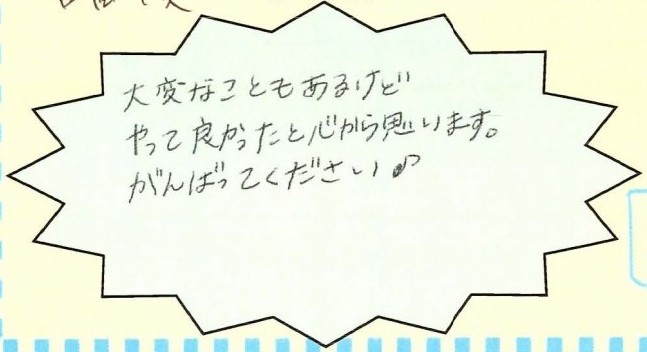 大変なこともあるけど
やって良かったと心から思います。
がんばってください♪